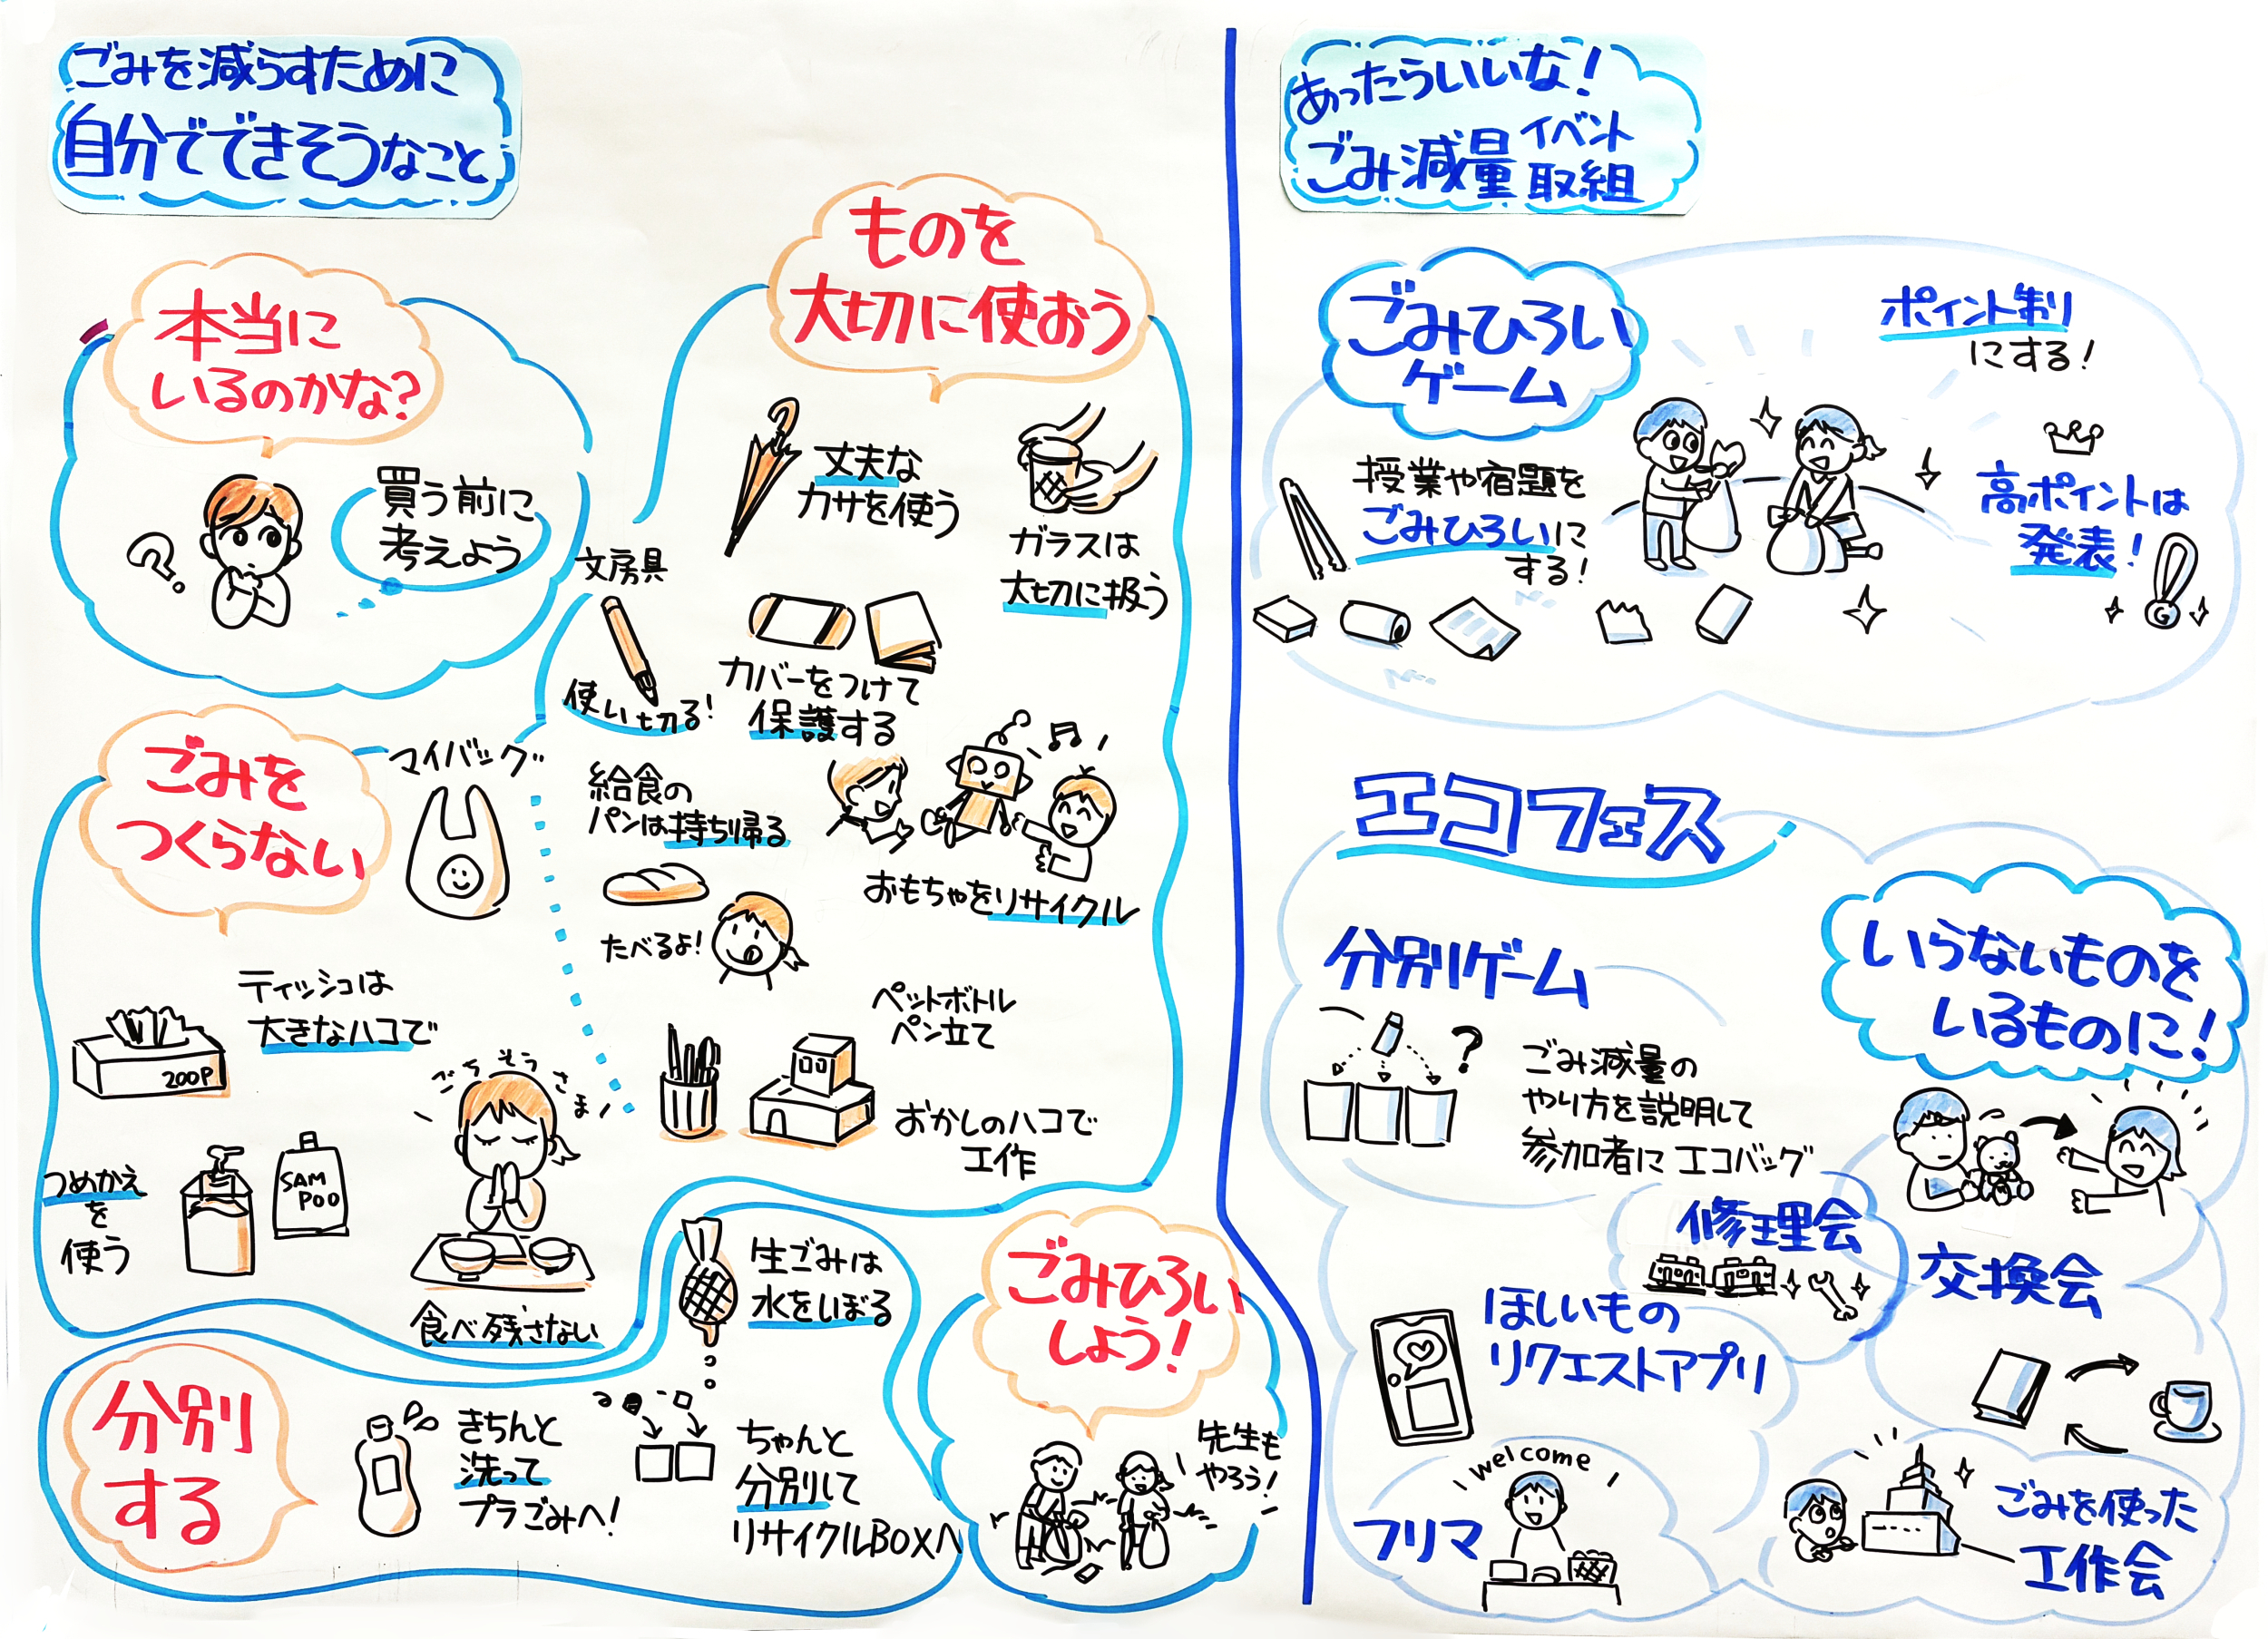 ごみを減らすために
自分でできそうなこと
本当に
いるのかな?
買う前に
考えよう
ものを
大切に使おう
丈夫な
カサを使う
ガラスは
大切に扱う
文房具
使い切る!
カバーをつけて
保護する
給食の
パンは持ち帰る
たべるよ!
おもちゃをリサイクル
ペットボトル
ペン立て
おかしのハコで
工作
ごみを
つくらない
マイバッグ
ティッシュは
大きなハコで
200P
ごちそうさま!
つめかえ
を
使う
SAM
POO
食べ残さない
分別
する
きちんと
洗って
プラごみへ!
生ごみは
水をしぼる
ちゃんと
分別して
リサイクルBOXへ
ごみひろい
しよう!
先生も
やろう!
あったらいいな!
ごみ減量イベント
取組
ごみひろい
ゲーム
授業や宿題を
ごみひろいに
する!
ポイント制
にする!
高ポイントは
発表!
G
エコフェス
分別ゲーム
?
ごみ減量の
やり方を説明して
参加者にエコバッグ
いらないものを
いるものに!
修理会
交換会
ほしいもの
リクエストアプリ
welcome
フリマ
ごみを使った
工作会